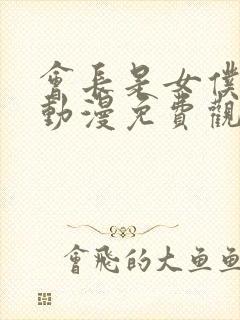 會長是女僕
動漫免費觀
會飛的大魚魚